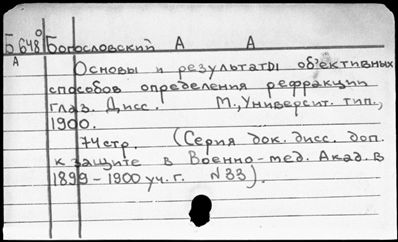 Б 648° Богословский А А
А
Основы и результаты объективных
способов определения рефракции
глаз. Дисс. М., Университ. тип.,
1900.
74 стр. (Серия док. дисс. доп.
к защите в Военно-мед. Акад. в
1899-1900 уч. г. N 33).